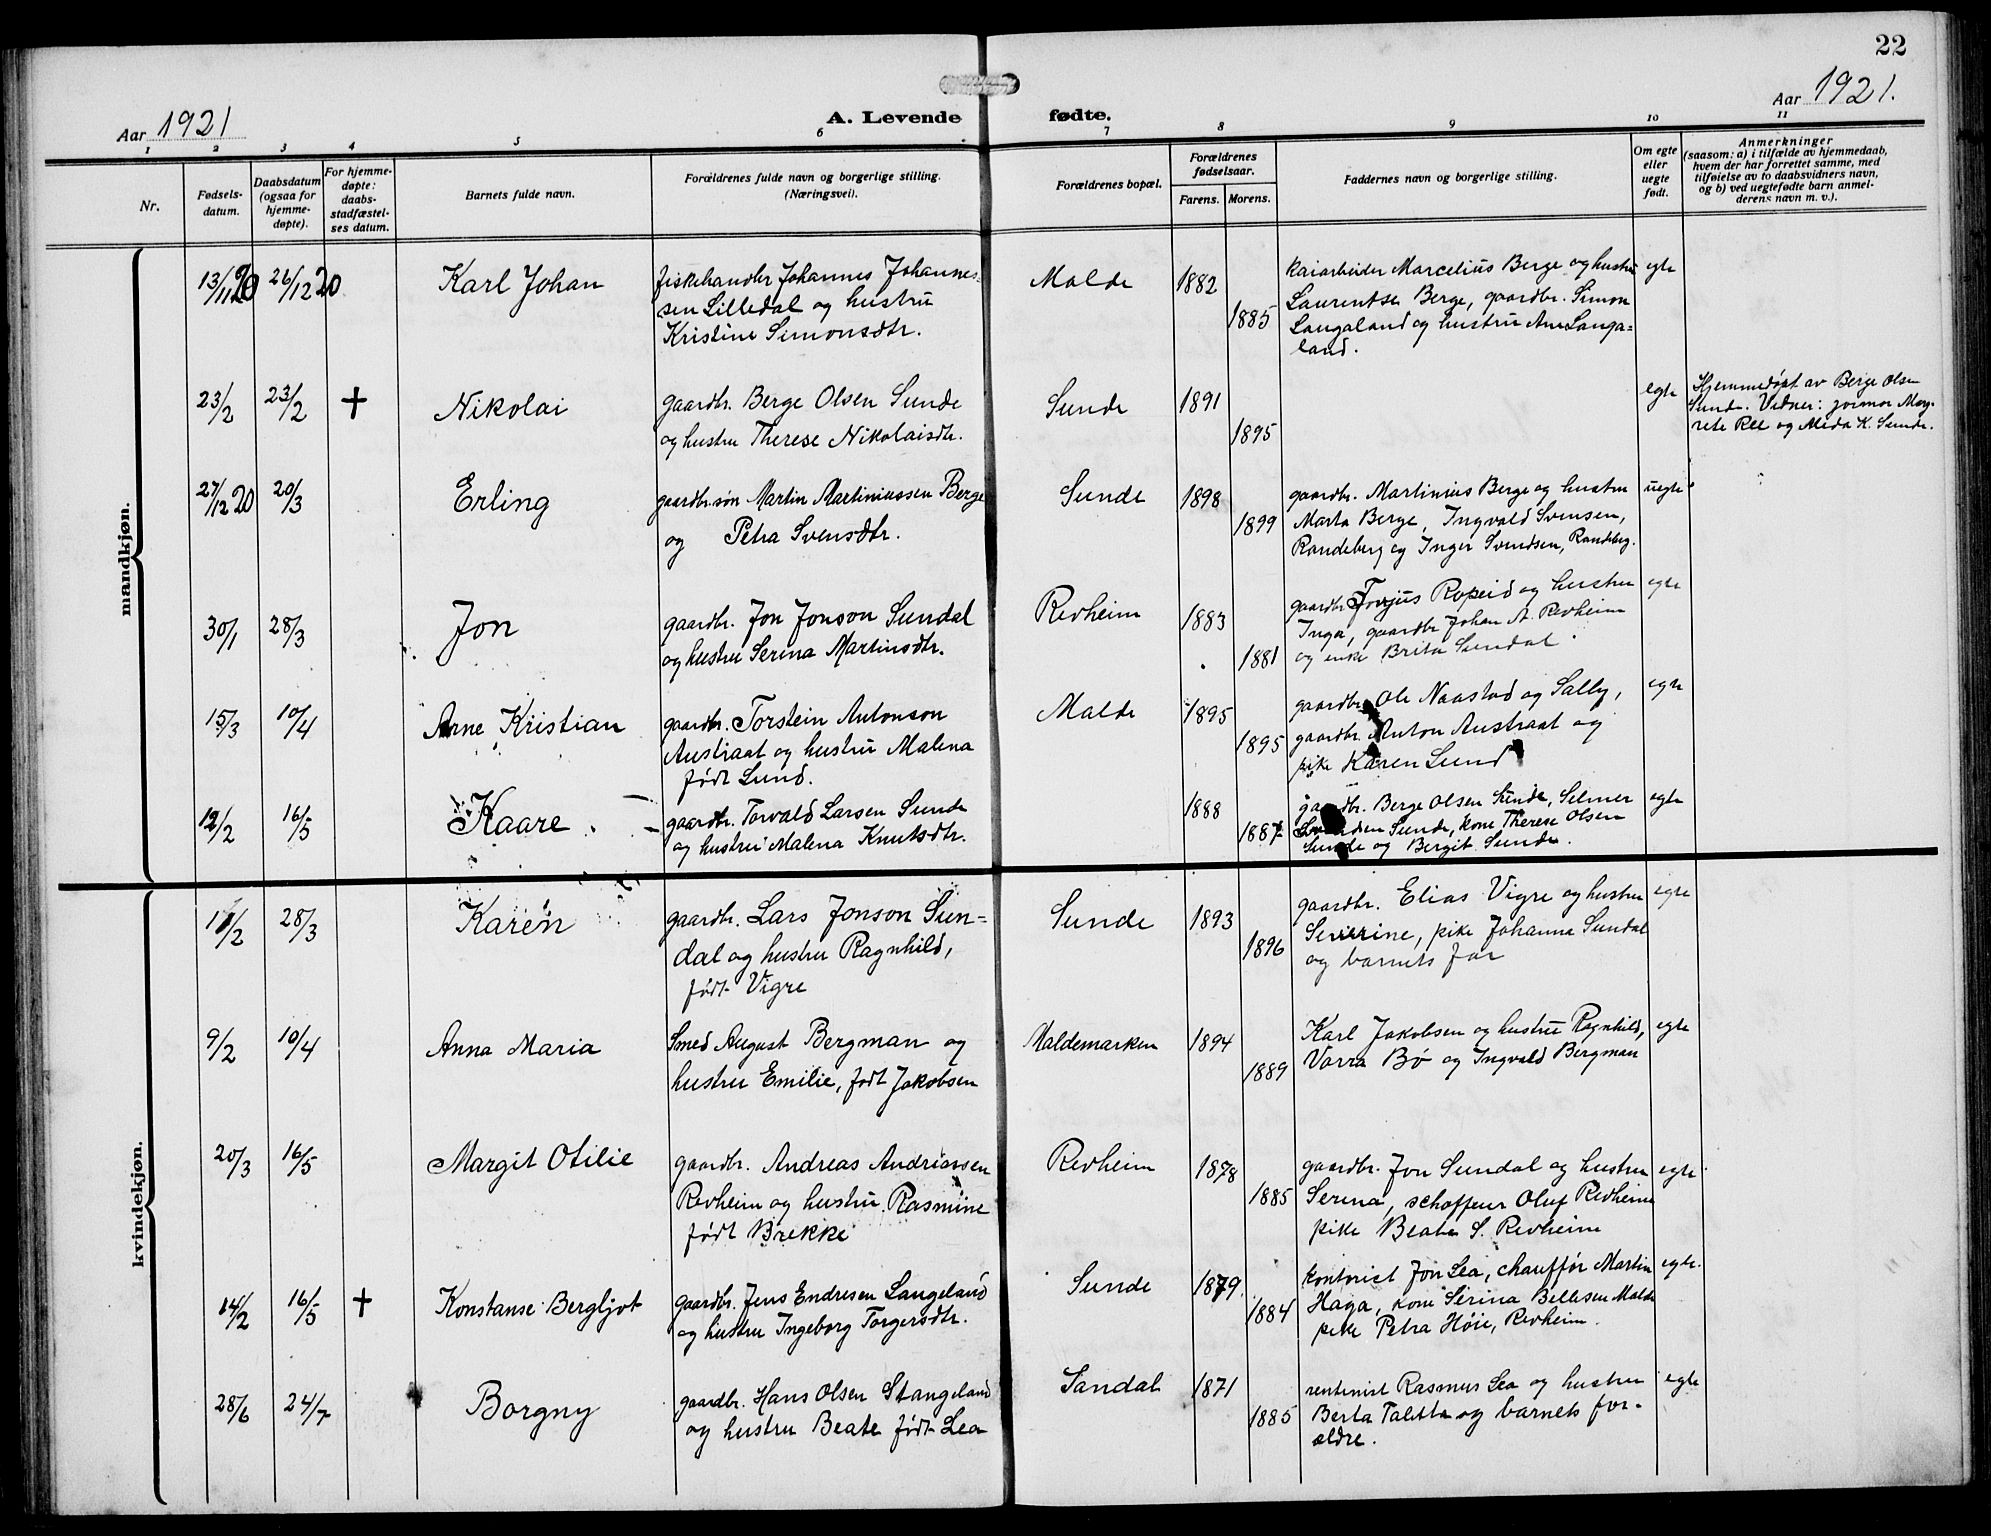 22
Aar 1921
A. Levende fødte.
Aar 1921.
1 2 3 4 5 6 7 8 9 10 11
Nr.
Fødsels-
datum.
Daabsdatum
(ogsaa for
hjemme-
døpte).
For hjemme-
døpte:
daabs-
stadfæstel-
ses datum.
Barnets fulde navn.
Forældrenes fulde navn og borgerlige stilling.
(Næringsvei).
Forældrenes bopæl.
Forældrenes
fødselsaar.
Farens. Morens.
Faddernes navn og borgerlige stilling.
Om egte
eller
uegte
født.
Anmerkninger
(saasom: a) i tilfælde av hjemmedaab,
hvem der har forrettet samme, med
tilføielse av to daabsvidners navn,
og b) ved uegtefødte barn anmel-
derens navn m. v.).
mandkjøn.
13/11 20 26/12 20 Karl Johan
fiskehandler Johannes Johannes-
sen Lilledal og hustru
Kristine Simonsdtr.
Malde 1882 1885
kaiarbeider Marcelius Berge og hustru
Laurentse Berge, gaardbr. Simon
Langaland og hustru Ane Langa=
land.
egte
23/2 23/2 † Nikolai
gaardbr. Berge Olsen Sunde
og hustru Therese Nikolaisdtr.
Sunde 1891 1895
egte
Hjemmedøpt av Berge Olsen
Sunde. Vidner: jormor Mag-
rete Ree og Alida K. Sunde.
27/12 20 20/3 Erling
gaardbr.søn Martin Martiniussen Berge
og Petra Svensdtr.
Sunde 1898 1899
gaardbr. Martinius Berge og hustru
Marta Berge, Ingvald Svensen,
Randeberg og Inger Svendsen, Randebg.
uegte
30/1 28/3 Jon
gaardbr. Jon Jonson Sundal
og hustru Serina Martinsdtr.
Revheim 1883 1881
gaardbr. Torjus Ropeid og hustru
Inga, gaardbr Johan A. Revheim
og enke Brita Sundal
egte
15/3 10/4 Arne Kristian
gaardbr. Torstein Antonson
Austraat og hustru Malena
født Lund.
Malde 1895 1895
gaardbr. Ole Naastad og Sally,
gaardbr. Anton Austraat og
pike Karen Lund
egte
12/2 16/5 Kaare.
gaardbr. Torvald Larsen Sunde
og hustru Malena Knutsdtr.
1888 1887
gaardbr. Berge Olsen Sunde, Selmer
Sunde, kone Therese Olsen
Sunde og Bergit Sunde.
egte
kvindekjøn.
11/2 28/3 Karen
gaardbr. Lars Jonson Sun=
dal og hustru Ragnhild,
født Vigre
Sunde 1893 1896
gaardbr. Elias Vigre og hustru
Severine, pike Johanna Sundal
og barnets far
egte
9/2 10/4 Anna Maria
Smed August Bergman og
hustru Emilie, født Jakobsen
Maldemarken 1894 1889
Karl Jakobsen og hustru Ragnhild,
Varra Bø og Ingvald Bergman
egte
20/3 16/5 Margit Otilie
gaardbr. Andreas Andreassen
Revheim og hustru Rasmine
født Brekke
Revheim 1878 1885
gaardbr. Jon Sundal og hustru
Serina, schoffeur Oluf Revheim
pike Beate S. Revheim
egte
14/2 16/5 † Konstanse Bergljot
gaardbr. Jens Endresen Langeland
og hustru Ingeborg Torgersdtr.
Sunde 1879. 1884
kontorist Jon Lea, chauffør Martin
Haga, kone Serina Bellesen Malde
pike Petra Høie, Revheim.
egte.
28/6 24/7 Borgny
gaardbr. Hans Olsen Stangeland
og hustru Beate født Lea
Sandal 1871 1885
rentenist Rasmus Lea og hustru
Berta Taletta og barnets for-
ældre.
egte